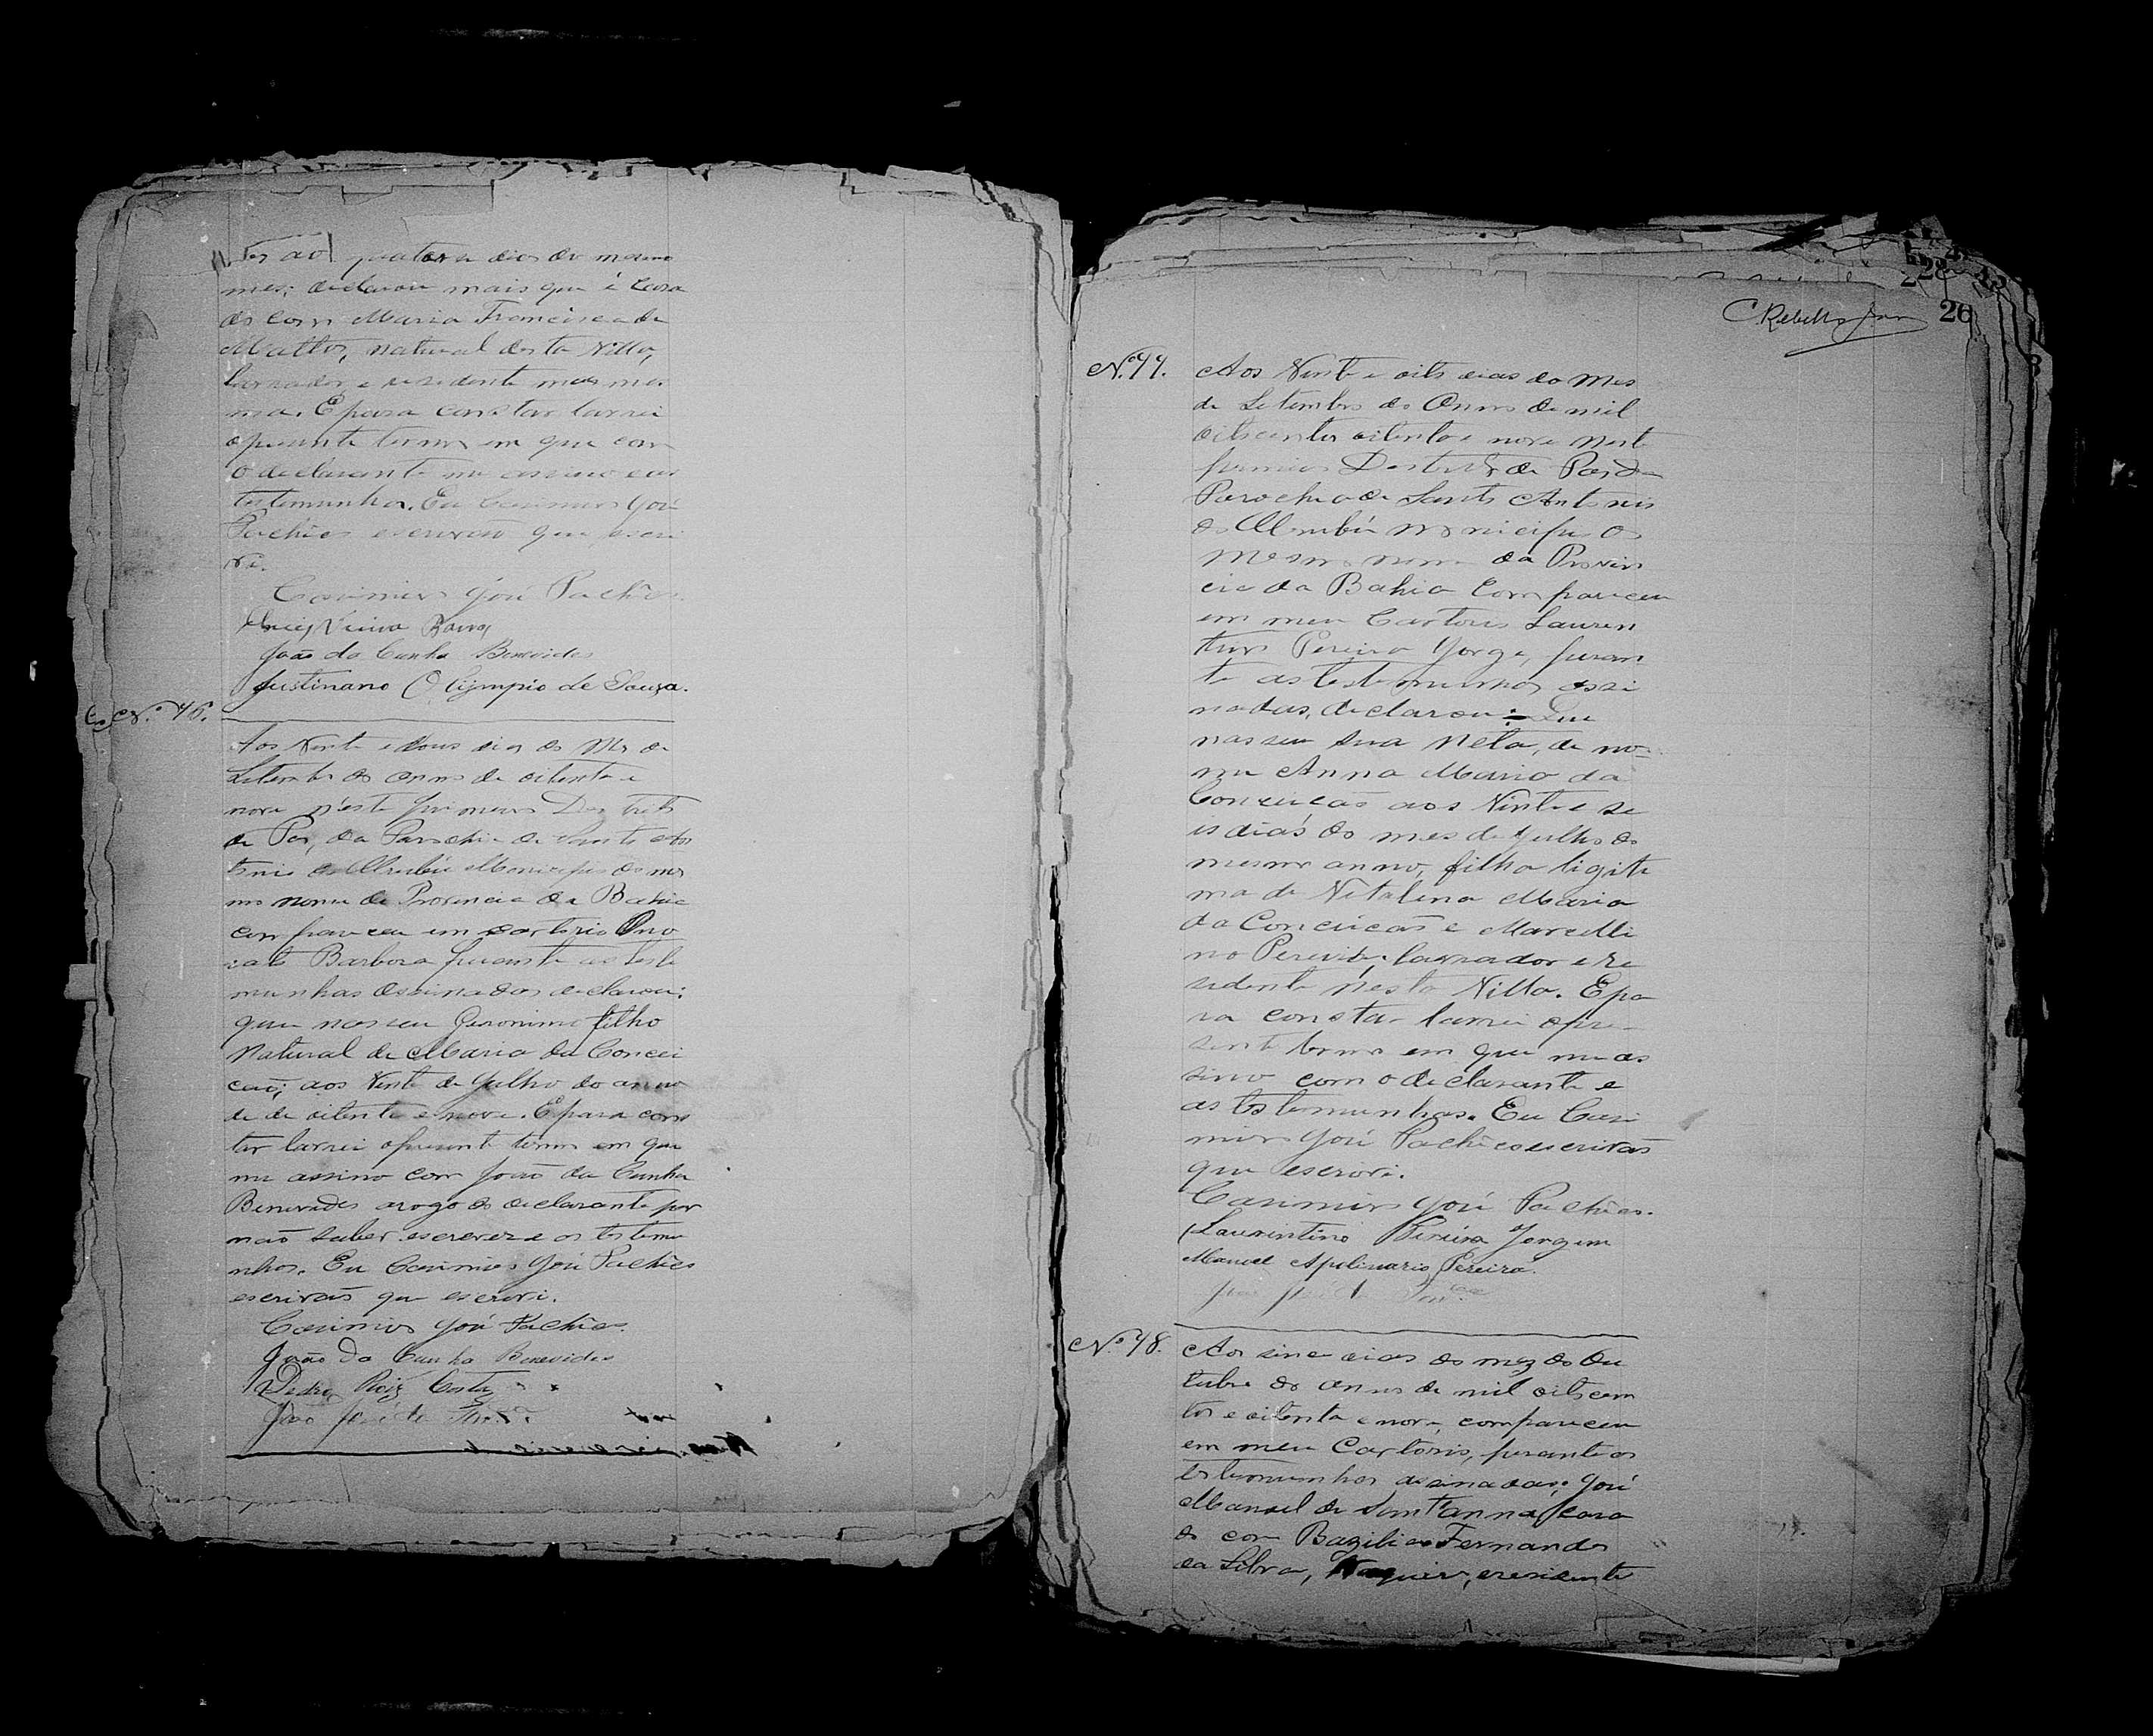 ao quatorze dias do mesmo
mes; declarou mais que é casa
do com Maria Francisca de
Mattos, natural desta Villa,
lavrador e residente na mes
ma. E para constar lavrei
o presente termo em que com
o declarante me assino e as
testemunhas. Eu Casimiro José
Pachêco escrivão que escre
vi.
Casimiro José Pachêco
Vieira
João da Cunha Benevides
Justinano Olijmpio de Souza.
N.º 46.
Aos Vinte e dous dias do Mes de
Setembro do anno de oitenta e
nove n'este primeiro Destricto
de Paz, da Parochia de Santo An
tonio do Urubú Monicipio do mes
mo nome da Provincia da Bahia
compareceu em cartorio Ono
rato Barboza perante as teste
munhas assinados declarou:
que nasceu Geronimo filho
Natural de Maria da Concei
ção; aos Vinte de Julho do anno
de de oitenta e nove. E para cons
tar lavrei o presente termo em que
me assino com João da Cunha
Benevides arogo do declarante por
não saber escrever e as testemu
nhas. Eu Casimiro José Pachêco
escrivão que escrevi.
Casimiro José Pachêco.
João da Cunha Benevides
Pedro Roiz Costa
João José de
C. Rebello
26
N.º 47.
Aos Vinte e oito dias do Mes
de Setembro do Anno de mil
oitocentos oitenta e nove neste
primeiro Destricto de Paz da
Parochia de Santo Antonio
do Urubú Monicipio do
Mesmo nome da Provin
cia da Bahia Compareceu
em meu Cartorio Lauren
tino Pereira Jorge, peran
te as testemunhas assi
nadas, declarou: Que
nasseu sua Neta, de no-
me Anna Maria da
Conceicão aos Vinte e se
is dias do mes de Julho do
mesmo anno, filha ligiti
ma de Vitalina Maria
da Conceicão e Marcelli
no Pereira, lavrador e re
sidente nésta Villa. E pa
ra constar lavrei o pre-
sente termo em que me as
sino com o declarante e
as testemunhas. Eu Casi
miro José Pachêco escrivão
que escrevi.
Casimiro José Pachêco.
Laurintino Pereira Jorge
Manoel Apolinario Pereira.
N.º 48.
Aos sinco dias do mez do Ou
tubro do anno de mil oitocen
tos e oitenta e nove, compareceu
em meu Cartorio, perante as
testemunhas assinadas; José
Manoel de Sant'anna, casa
do com Bazilia Fernandes
da Silva, Vaqueiro, e residente